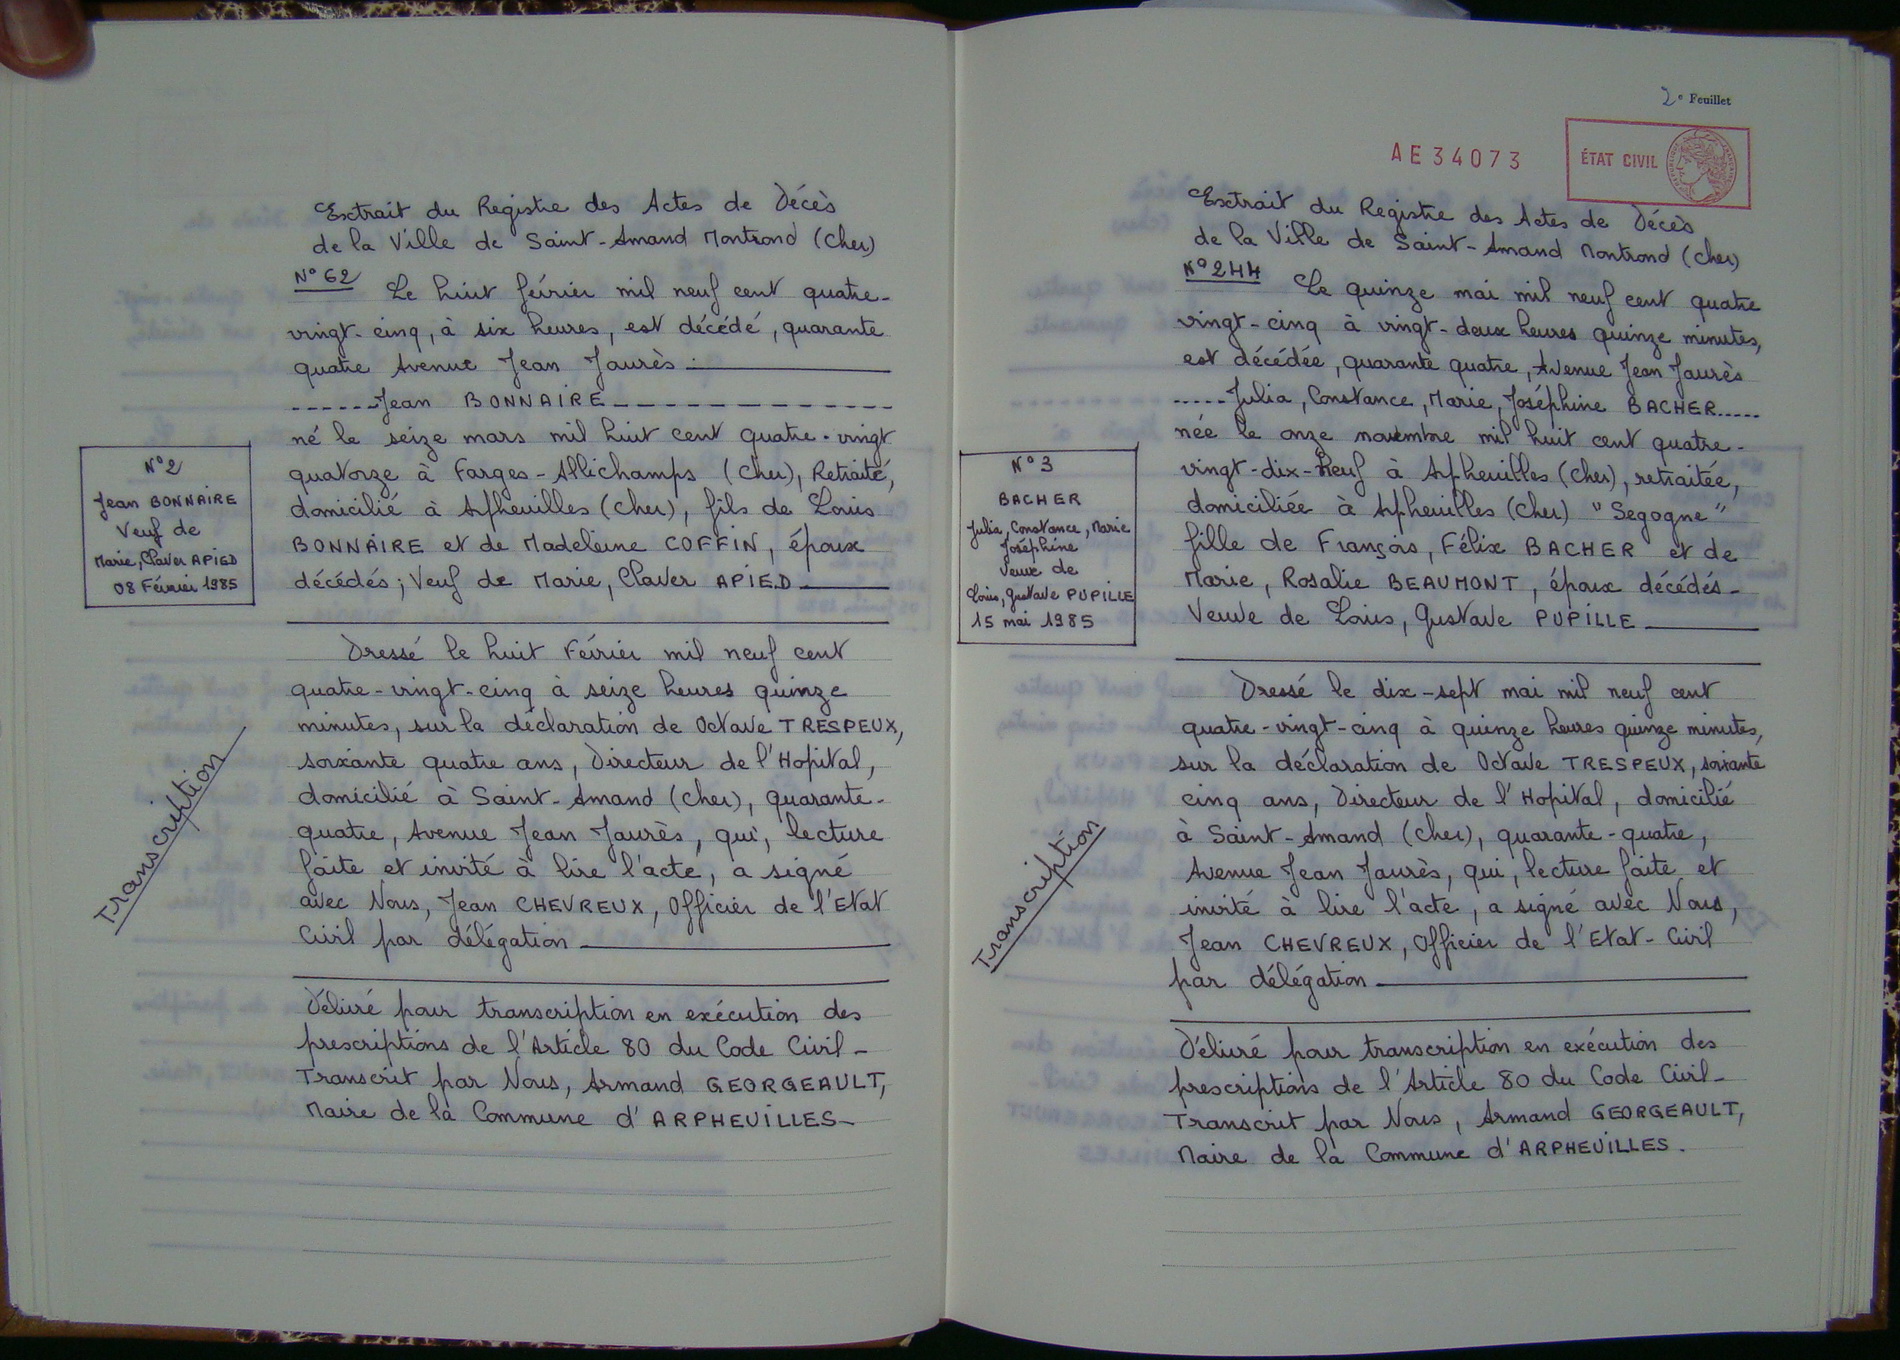 Extrait du Registre des Actes de Décès
de la Ville de Saint-Amand Montrond (Cher)
N° 62 Le huit février mil neuf cent quatre-
vingt-cinq, à six heures, est décédé, quarante
quatre Avenue Jean Jaurès :
Jean BONNAIRE
né le seize mars mil huit cent quatre-vingt
quatorze à Farges-Allichamps (Cher), Retraité,
domicilié à Arpheuilles (Cher), fils de Louis
BONNAIRE et de Madeleine COFFIN, époux
décédés; Veuf de Marie, Claver APIED
N° 2
Jean BONNAIRE
Veuf de
Marie, Claver APIED
08 Février 1985
Dressé le huit Février mil neuf cent
quatre-vingt-cinq à seize heures quinze
minutes, sur la déclaration de Octave TRESPEUX,
soixante quatre ans, Directeur de l'Hopital,
domicilié à Saint-Amand (Cher), quarante-
quatre, Avenue Jean Jaurès, qui, lecture
faite et invité à lire l'acte, a signé
avec Nous, Jean CHEVREUX, Officier de l'Etat
Civil par délégation
Transcription
Délivré pour transcription en exécution des
prescriptions de l'Article 80 du Code Civil-
Transcrit par Nous, Armand GEORGEAULT,
Maire de la Commune d'ARPHEUILLES-
2e Feuillet
AE34073
ÉTAT CIVIL
Extrait du Registre des Actes de Décès
de la Ville de Saint-Amand Montrond (Cher)
N° 244 Le quinze mai mil neuf cent quatre
vingt-cinq à vingt-deux heures quinze minutes,
est décédée, quarante quatre, Avenue Jean Jaurès
Julia, Constance, Marie, Joséphine BACHER
née le onze novembre mil huit cent quatre-
vingt-dix-neuf à Arpheuilles (Cher), retraitée,
domiciliée à Arpheuilles (Cher) "Segogne"
fille de François, Félix BACHER et de
Marie, Rosalie BEAUMONT, époux décédés-
Veuve de Louis, Gustave PUPILLE
N° 3
BACHER
Julia, Constance, Marie
Joséphine
Veuve de
Louis, Gustave PUPILLE
15 mai 1985
Dressé le dix-sept mai mil neuf cent
quatre-vingt-cinq à quinze heures quinze minutes,
sur la déclaration de Octave TRESPEUX, soixante
cinq ans, Directeur de l'Hopital, domicilié
à Saint-Amand (Cher), quarante-quatre,
Avenue Jean Jaurès, qui, lecture faite et
invité à lire l'acte, a signé avec Nous,
Jean CHEVREUX, Officier de l'Etat-Civil
par délégation
Transcription
Délivré pour transcription en exécution des
prescriptions de l'Article 80 du Code Civil-
Transcrit par Nous, Armand GEORGEAULT,
Maire de la Commune d'ARPHEUILLES.